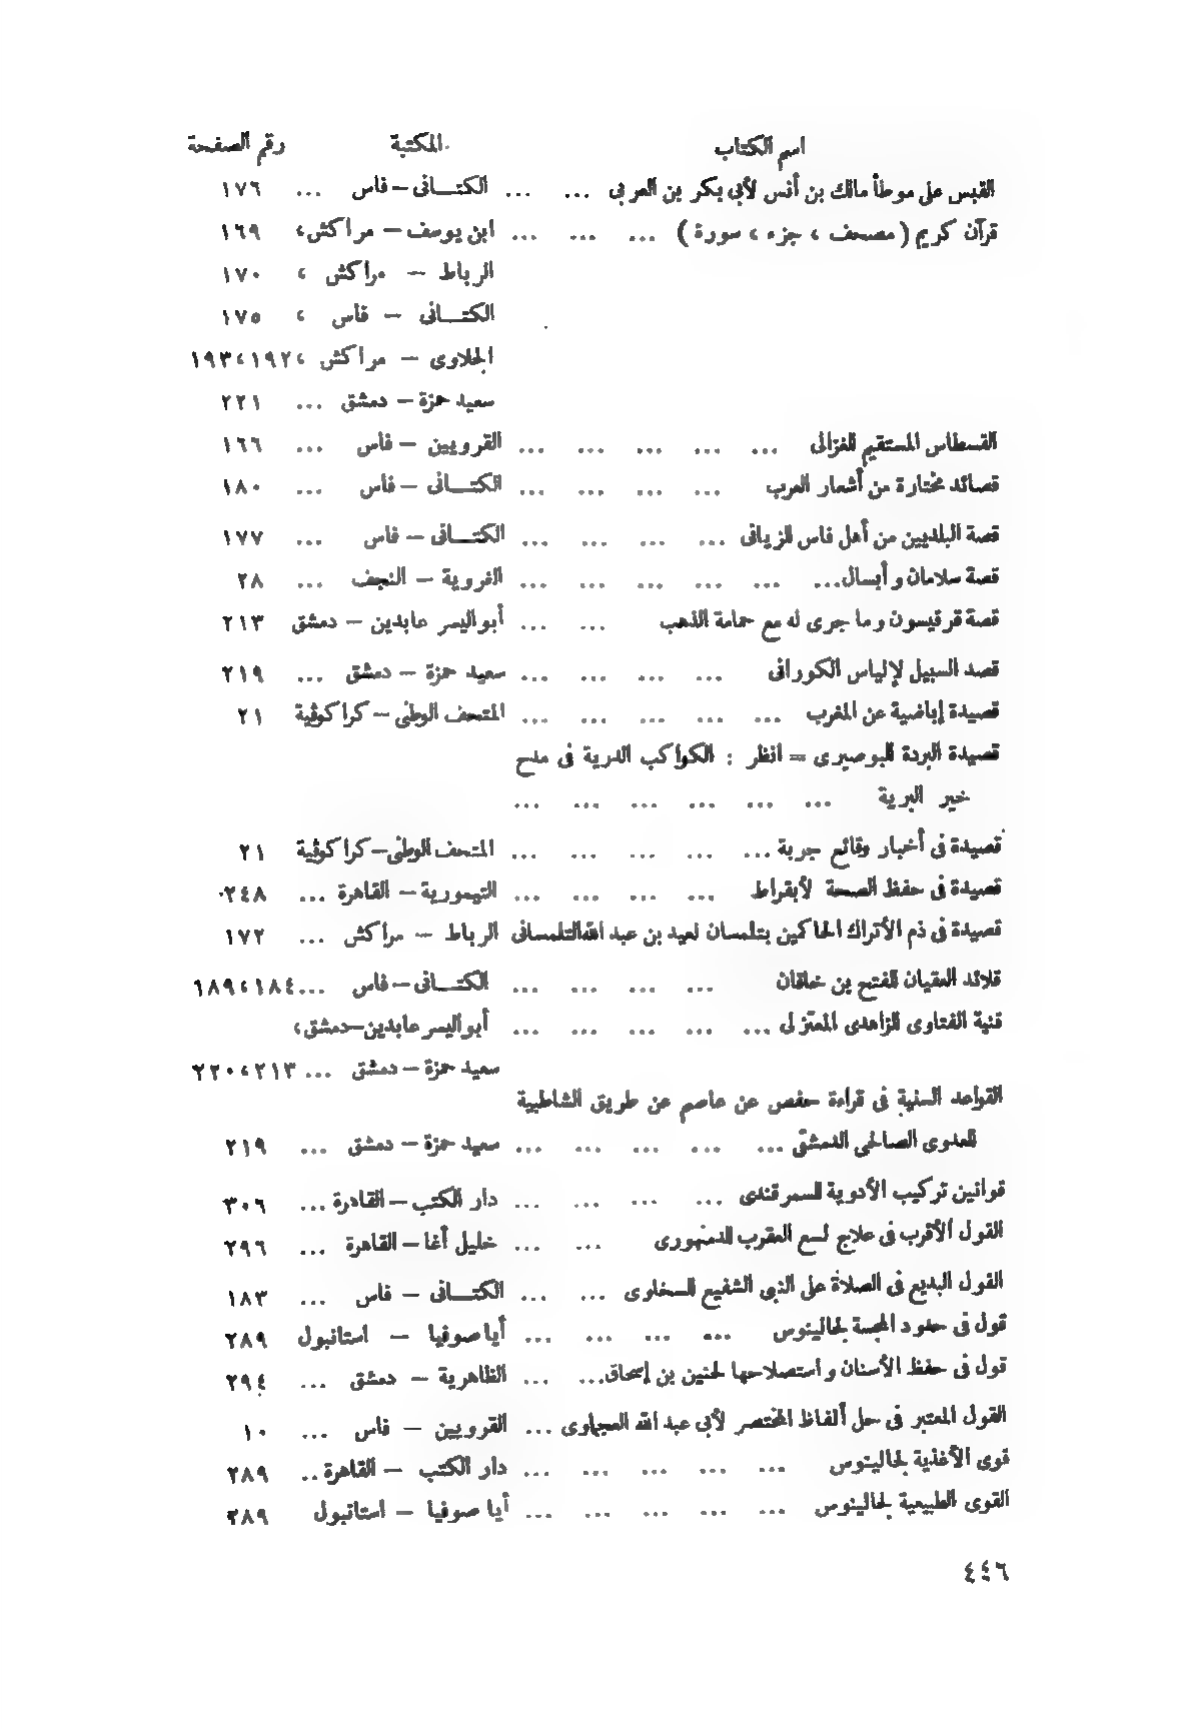 اسم الكتاب المكتبة رقم الصفحة
القبس على موطأ مالك بن أنس لأبى بكر بن العربى ... ... الكتـــانى – فاس ... ١٧٦
قرآن كريم ( مصحف ، جزء ، سورة ) ... ... ... ابن يوسف – مراكش، ١٦٩
الرباط – مراكش ، ١٧٠
الكتـــانى – فاس ، ١٧٥
الجلاوى – مراكش ، ١٩٢،١٩٣
سعيد حمزة – دمشق ... ٢٢١
القسطاس المستقيم للغزالى ... ... ... ... ... القرويين – فاس ... ١٦٦
قصائد مختارة من أشعار العرب ... ... ... ... الكتـــانى – فاس ... ١٨٠
قصة البلديين من أهل فاس للزيانى ... ... ... ... الكتـــانى – فاس ... ١٧٧
قصة سلامان وأبسال... ... ... ... ... ... الغروية – النجف ... ٢٨
قصة قرقيسون وما جرى له مع حمامة الذهب ... ... أبو اليسر عابدين – دمشق ٢١٣
قصد السبيل لإلياس الكورانى ... ... ... ... سعيد حمزة – دمشق ... ٢١٩
قصيدة إباضية عن المغرب ... ... ... ... ... المتحف الوطنى – كراكوڤية ٢١
قصيدة البردة للبوصيرى = انظر : الكواكب الدرية فى مدح
خير البرية ... ... ... ... ... ...
قصيدة فى أخبار وقائع جربة ... ... ... ... ... المتحف الوطنى – كراكوڤية ٢١
قصيدة فى حفظ الصحة لأبقراط ... ... ... ... التيمورية – القاهرة ... ٢٤٨
قصيدة فى ذم الأتراك الحاكمين بتلمسان لعيد بن عبد الله التلمسانى الرباط – مراكش ... ١٧٢
قلائد العقيان للفتح بن خاقان ... ... ... ... الكتـــانى – فاس ... ١٨٤،١٨٩
قنية الفتاوى للزاهدى المعتزلى ... ... ... ... ... أبو اليسر عابدين – دمشق،
سعيد حمزة – دمشق ... ٢١٣،٢٢٠
القواعد السنية فى قراءة حفص عن عاصم عن طريق الشاطبية
للعدوى الصالحى الدمشقى ... ... ... ... ... سعيد حمزة – دمشق ... ٢١٩
قوانين تركيب الأدوية للسمرقندى ... ... ... ... دار الكتب – القاهرة ... ٣٠٦
القول الأقرب فى علاج لسع العقرب للدمنهورى ... ... خليل أغا – القاهرة ... ٢٩٦
القول البديع فى الصلاة على النبى الشفيع للسخاوى ... ... الكتـــانى – فاس ... ١٨٣
قول فى حدود المجسة لجالينوس ... ... ... ... أيا صوفيا – استانبول ٢٨٩
قول فى حفظ الأسنان واستصلاحها لحنين بن إسحاق... ... الظاهرية – دمشق ... ٢٩٤
القول المعتبر فى حل ألفاظ المختصر لأبى عبد الله العجماوى ... القرويين – فاس ... ١٠
قوى الأغذية لجالينوس ... ... ... ... ... دار الكتب – القاهرة .. ٢٨٩
القوى الطبيعية لجالينوس ... ... ... ... ... أيا صوفيا – استانبول ٢٨٩
٤٤٦